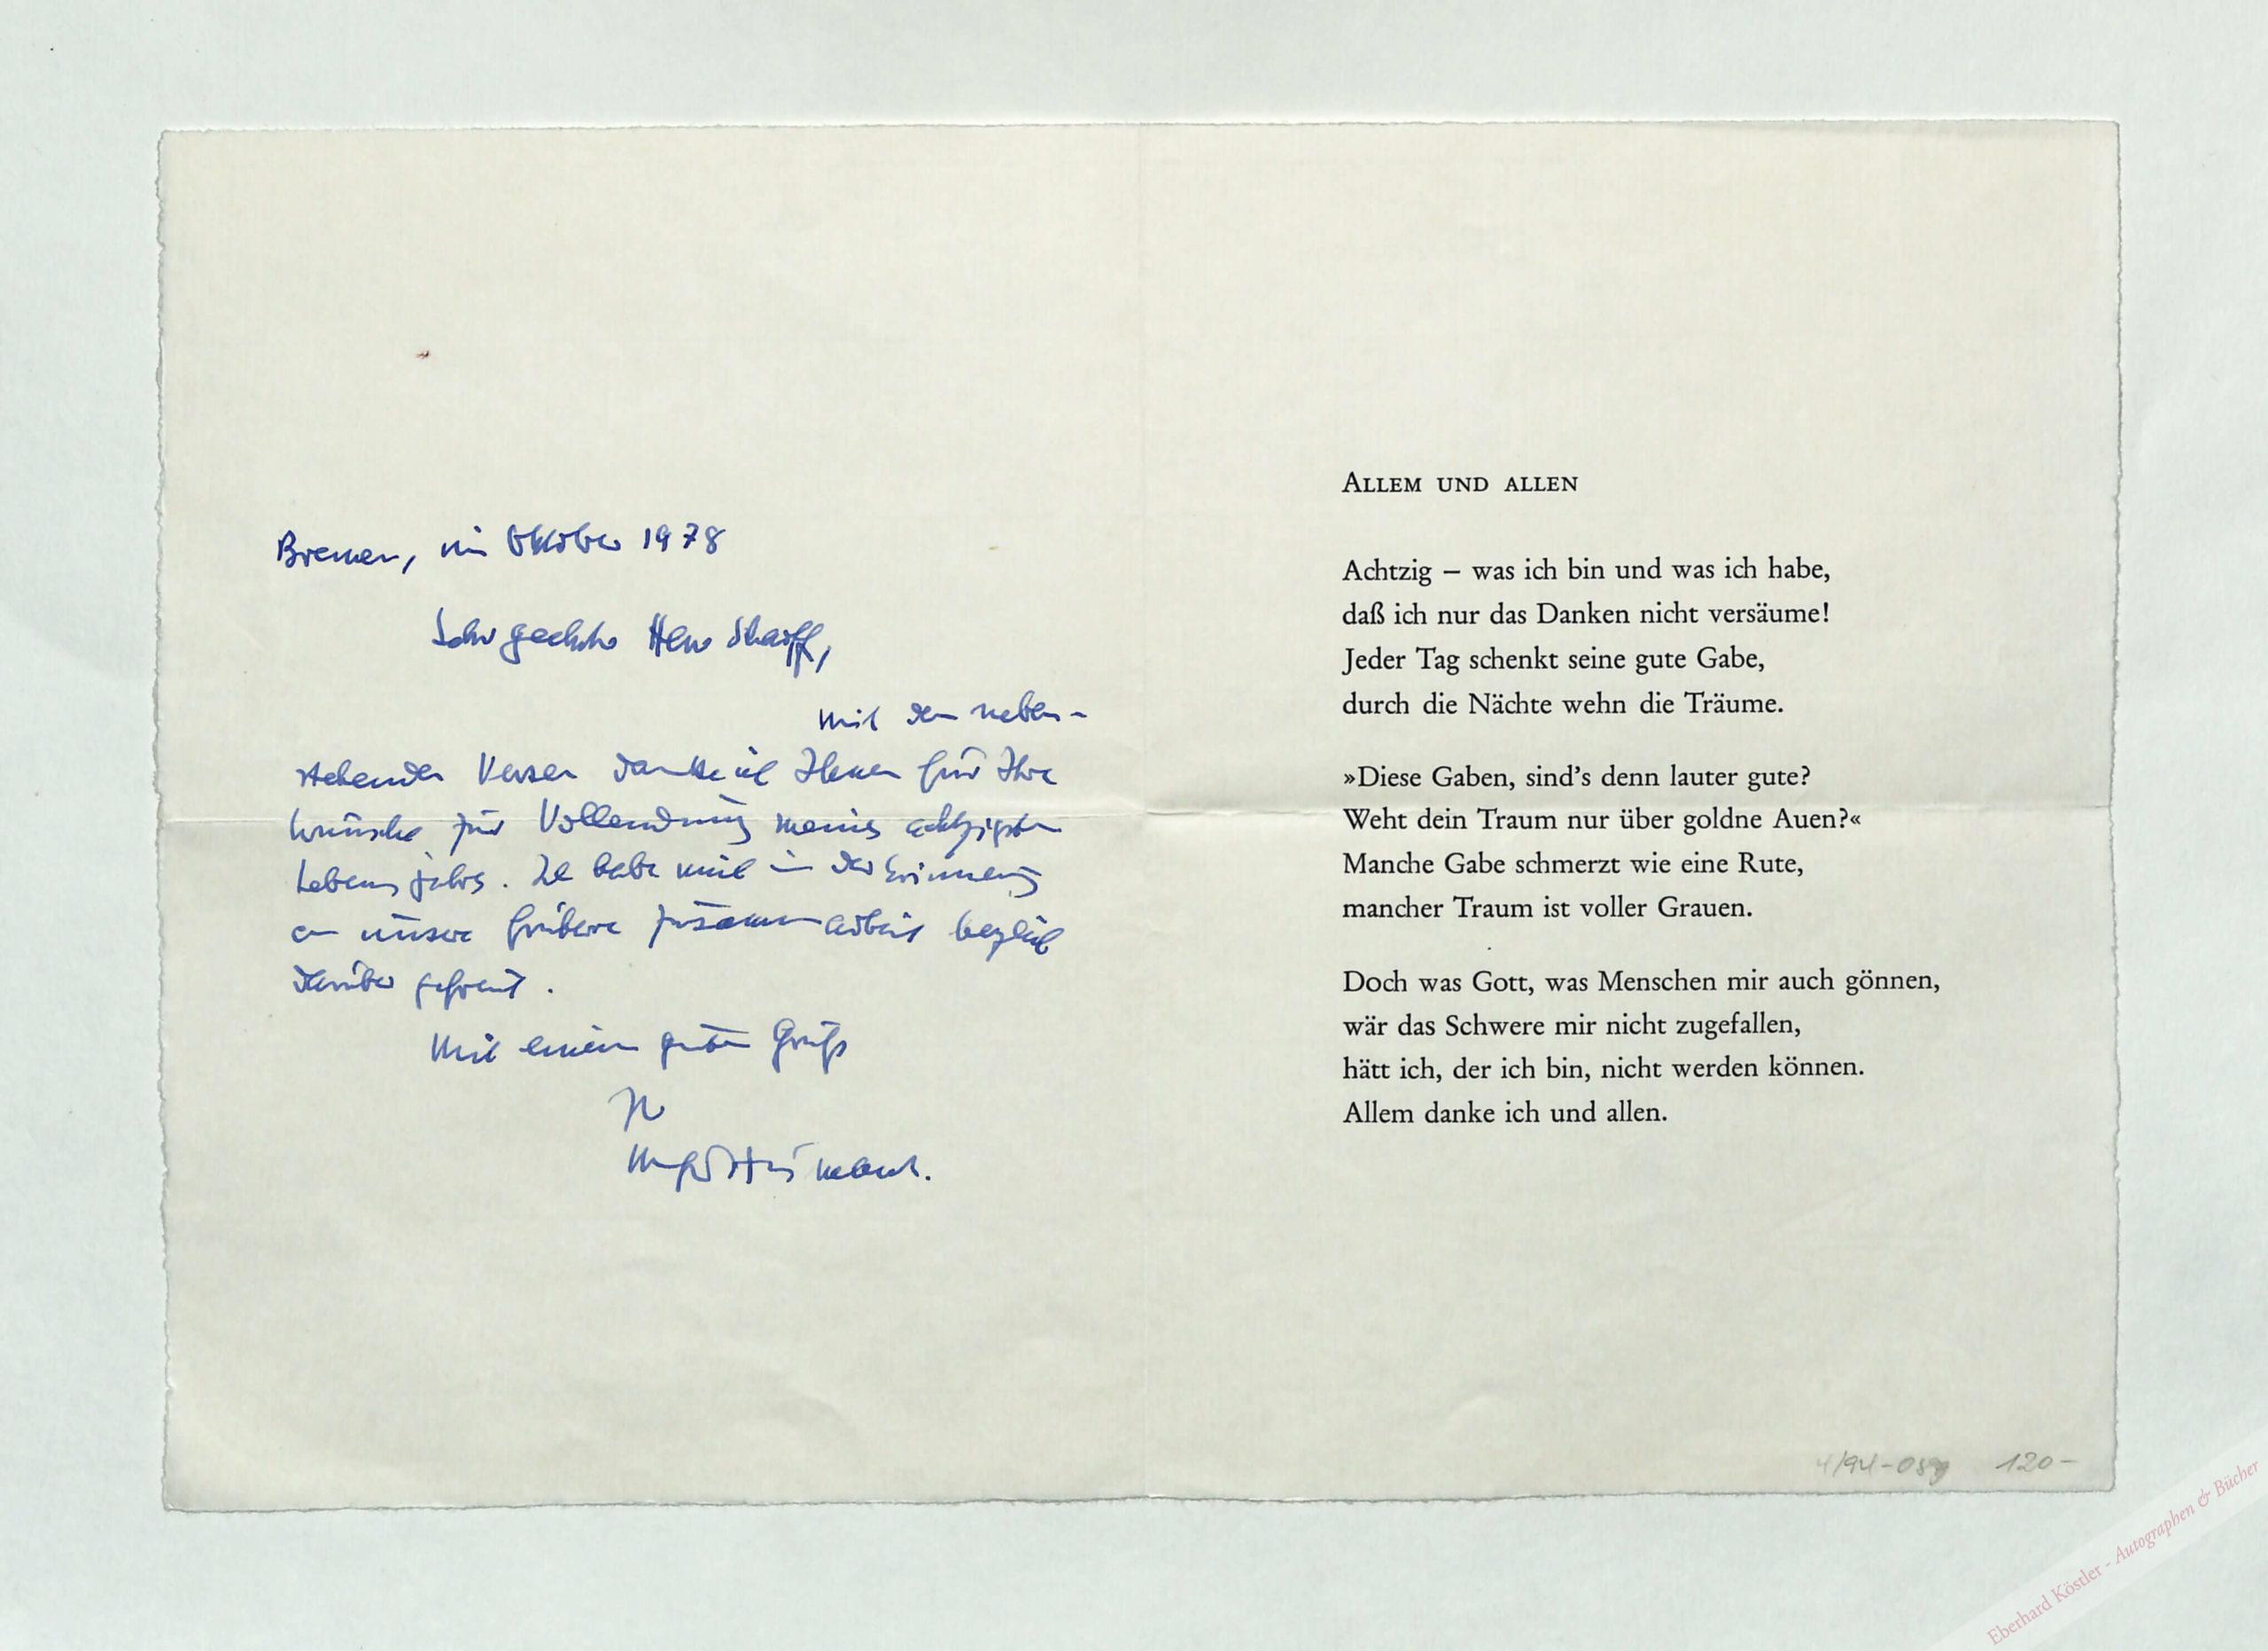 Bremen, im Oktober 1978
Sehr geehrter Herr Scharff,
mit den neben-
stehenden Versen danke ich Ihnen für Ihre
Wünsche zur Vollendung meines achtzigsten
Lebensjahrs. Ich habe mich in der Erinnerung
an unsere frühere Zusammenarbeit herzlich
darüber gefreut.
Mit einem guten Gruß
Ihr
ALLEM UND ALLEN
Achtzig – was ich bin und was ich habe,
daß ich nur das Danken nicht versäume!
Jeder Tag schenkt seine gute Gabe,
durch die Nächte wehn die Träume.
»Diese Gaben, sind's denn lauter gute?
Weht dein Traum nur über goldne Auen?«
Manche Gabe schmerzt wie eine Rute,
mancher Traum ist voller Grauen.
Doch was Gott, was Menschen mir auch gönnen,
wär das Schwere mir nicht zugefallen,
hätt ich, der ich bin, nicht werden können.
Allem danke ich und allen.
4/94-089 120-
Eberhard Köstler - Autographen & Bücher